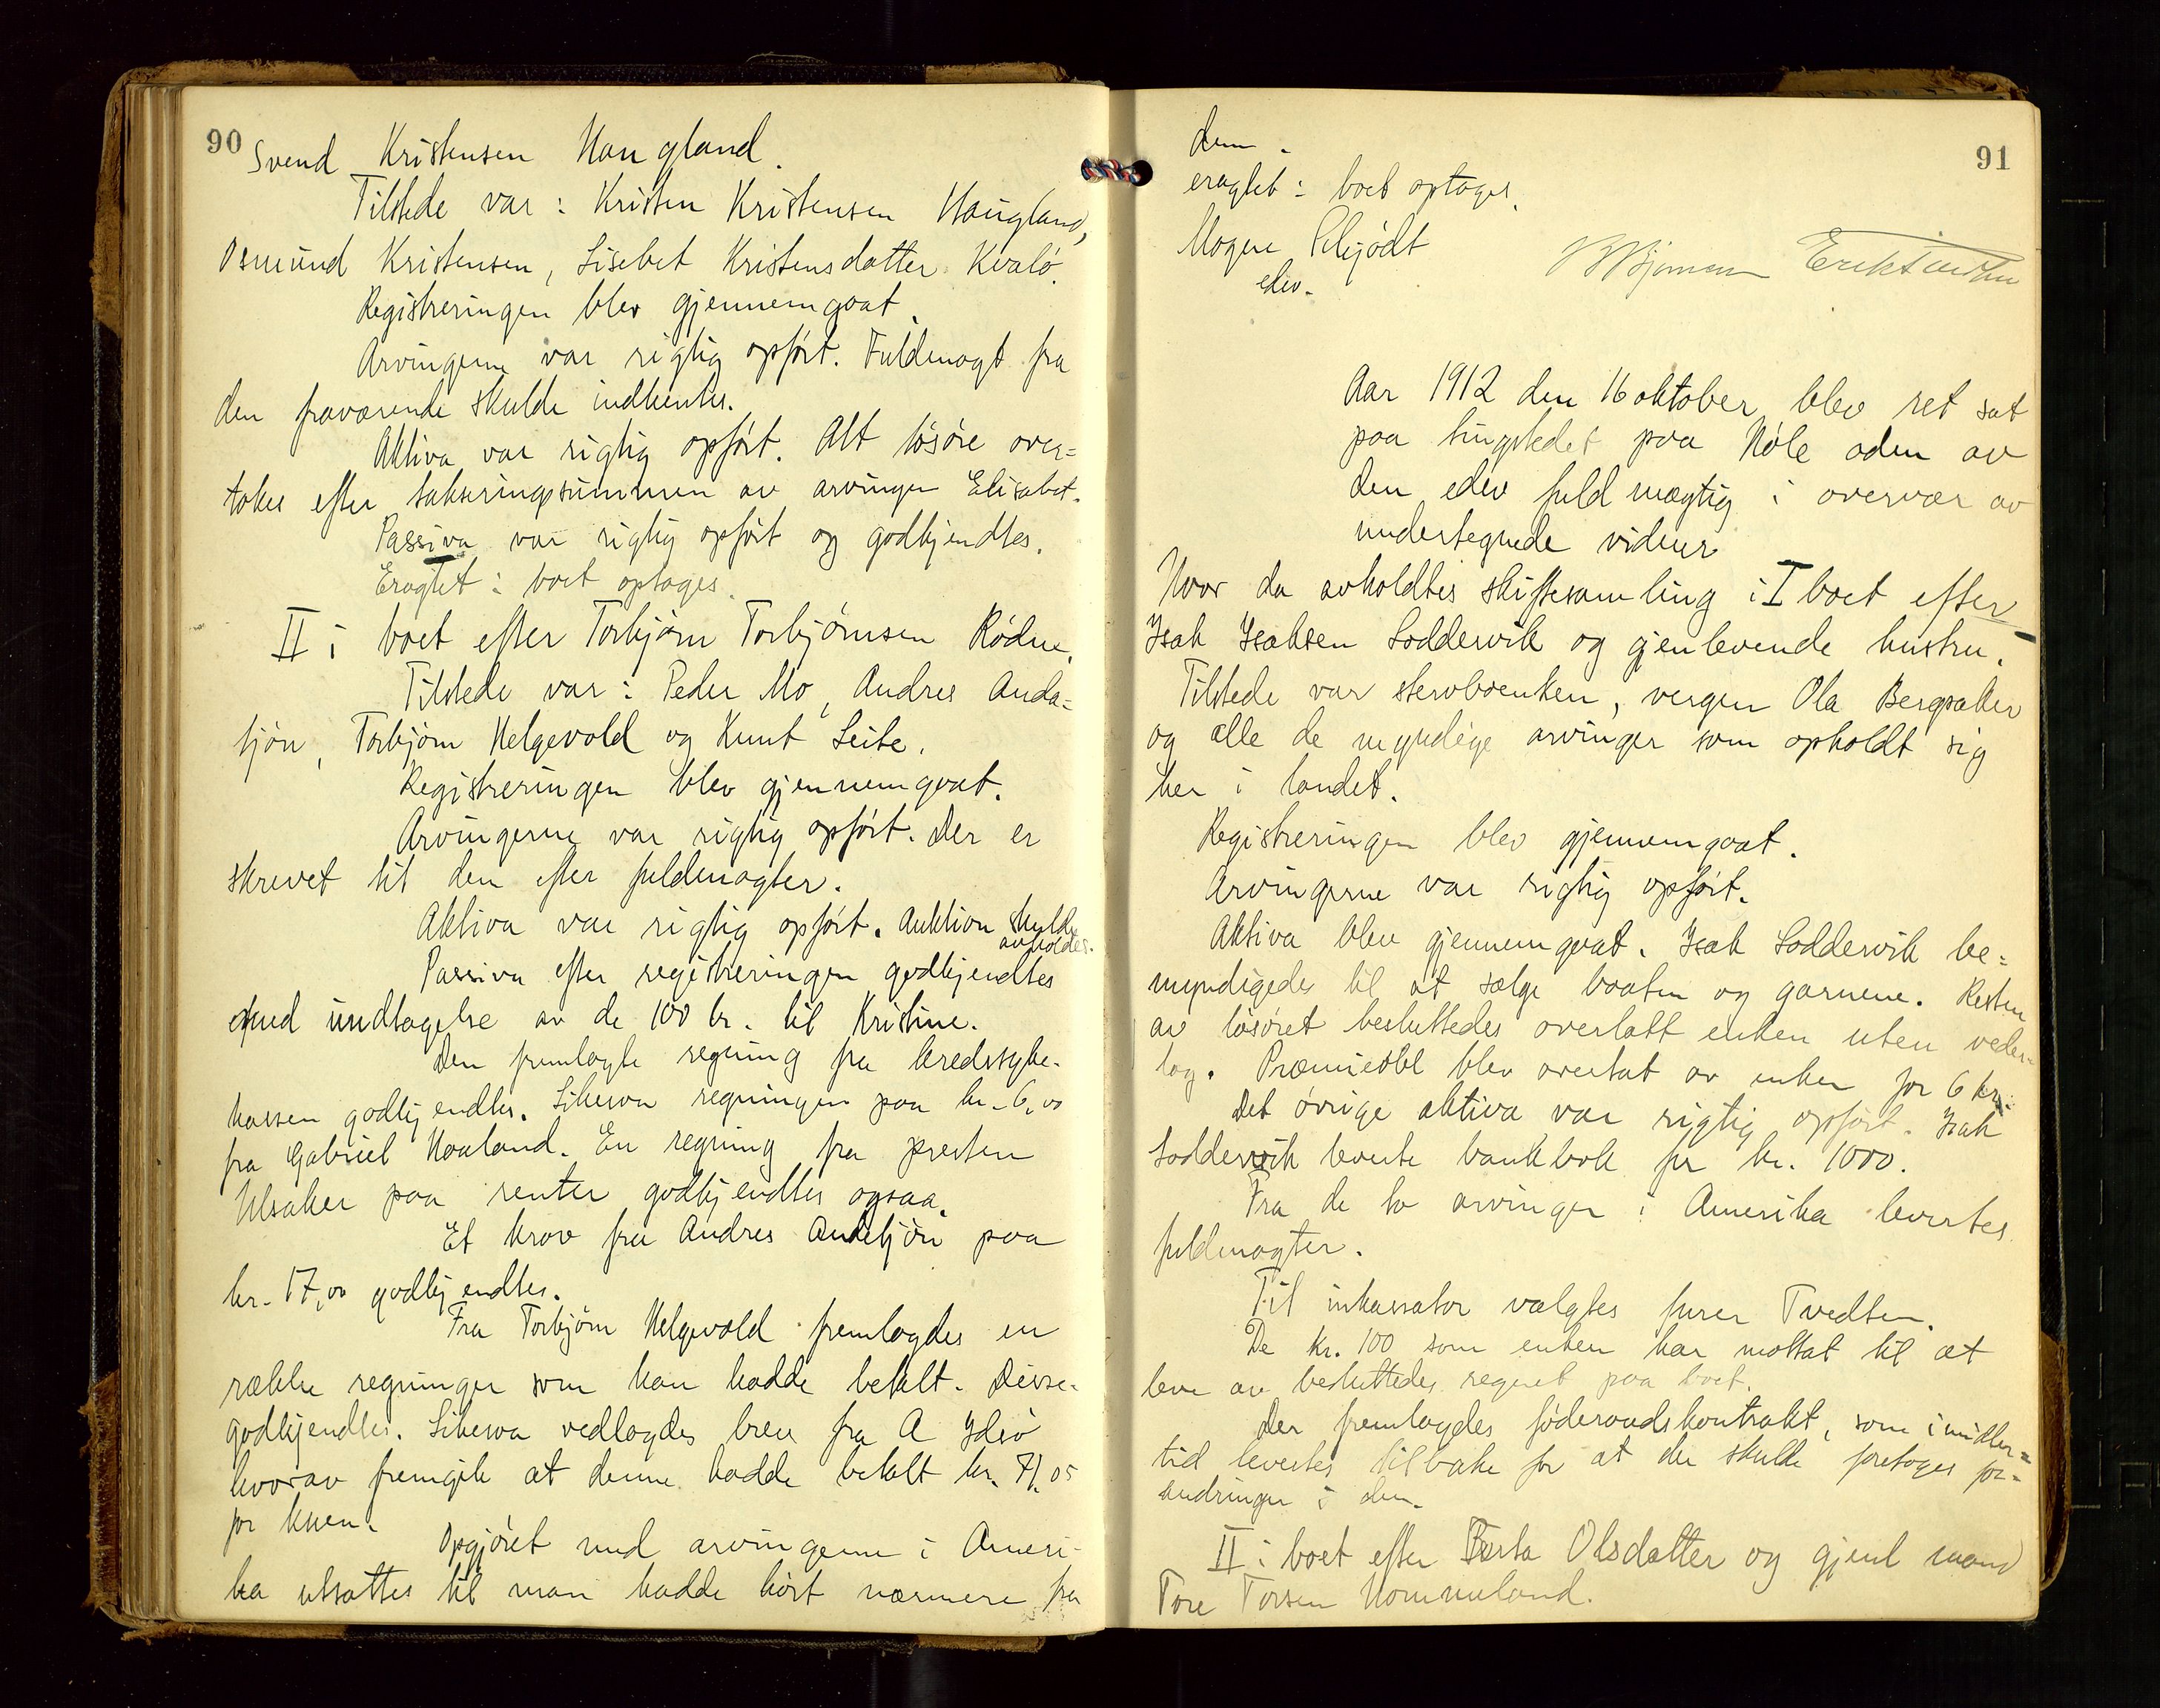 90
Svend Kristensen Haugland.
Tilstede var: Kristen Kristensen Haugland,
Osmund Kristensen, Lisebet Kristensdatter Kvalø.
Registreringen blev gjennemgaat.
Arvingerne var rigtig opført. Fuldmagt fra
den fraværende skulde indhentes.
Aktiva var rigtig opført. Alt løsøre over=
tokes efter takseringssummen av arvingen Elisabet.
Passiva var rigtig opført og godkjendtes.
Eragtet: boet optages.
II i boet efter Torbjørn Torbjørnsen Rødne.
Tilstede var: Peder Mo, Andres Anda=
tjøn, Torbjørn Helgevold og Knut Leite.
Registreringen blev gjennemgaat.
Arvingerne var rigtig opført. Der er
skrevet til den efter fuldmagter.
Aktiva var rigtig opført. Auktion skulde
avholdes.
Passiva efter registreringen godkjendtes
med undtagelse av de 100 kr. til Kristine.
Den fremlagte regning fra kredssyke-
kassen godkjendtes. Likesaa regningen paa kr. 6,00
fra Gabriel Haaland. En regning fra presten
Ulsaker paa renter godkjendtes ogsaa.
Et krav fra Andres Andatjøn paa
kr. 17,00 godkjendtes.
Fra Torbjørn Helgevold fremlagdes en
række regninger som han hadde betalt. Disse
godkjendtes. Likesaa vedlagdes brev fra A Idsø
hvorav fremgik at denne hadde betalt kr. 71.05
for kuen.
Opgjøret med arvingerne i Ameri-
ka utsattes til man hadde hørt nærmere fra
91
dem.
eragtet: boet optages.
Mogens Schjødt
edsv.
Aar 1912 den 16 oktober blev ret sat
paa tingstedet paa Høle aden av
den edsv fuldmægtig i overvær av
undertegnede vidner
Hvor da avholdtes skiftesamling i I boet efter
Isak Isaksen Loddervik og gjenlevende hustru.
Tilstede var stervboenken, vergen Ola Bergsaker
og alle de myndige arvinger som opholdt sig
her i landet.
Registreringen blev gjennemgaat.
Arvingerne var rigtig opført.
Aktiva blev gjennemgaat. Isak Loddervik be=
myndigedes til at sælge baaten og garnene. Resten
av løsøret besluttedes overlatt enken uten veder=
lag. blev overtat av enken for 6 kr.
Det øvrige aktiva var rigtig opført. Isak
Loddervik leverte bankbok for kr. 1000.
Fra de to arvinger i Amerika levertes
fuldmagter.
Til inkassator valgtes furer Tvedten.
De kr. 100 som enken har mottat til at
leve av besluttedes regnet paa boet.
Der fremlagdes føderaadskontrakt, som imidler=
tid levertes tilbake for at der skulde foretages for=
andringer i den.
II i boet efter Berta Olsdatter og gjenl mand
Tore Torsen Hommeland.